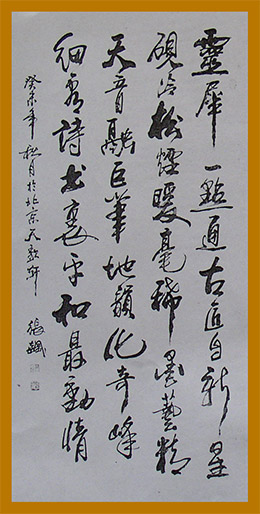 靈犀一點通古匠自新星
硯冷松煙暖毫稀墨藝精
天音融巨筆地韻化奇峰
細看詩书裏平和最動情
癸未年 松月於北京天歌軒 張飆